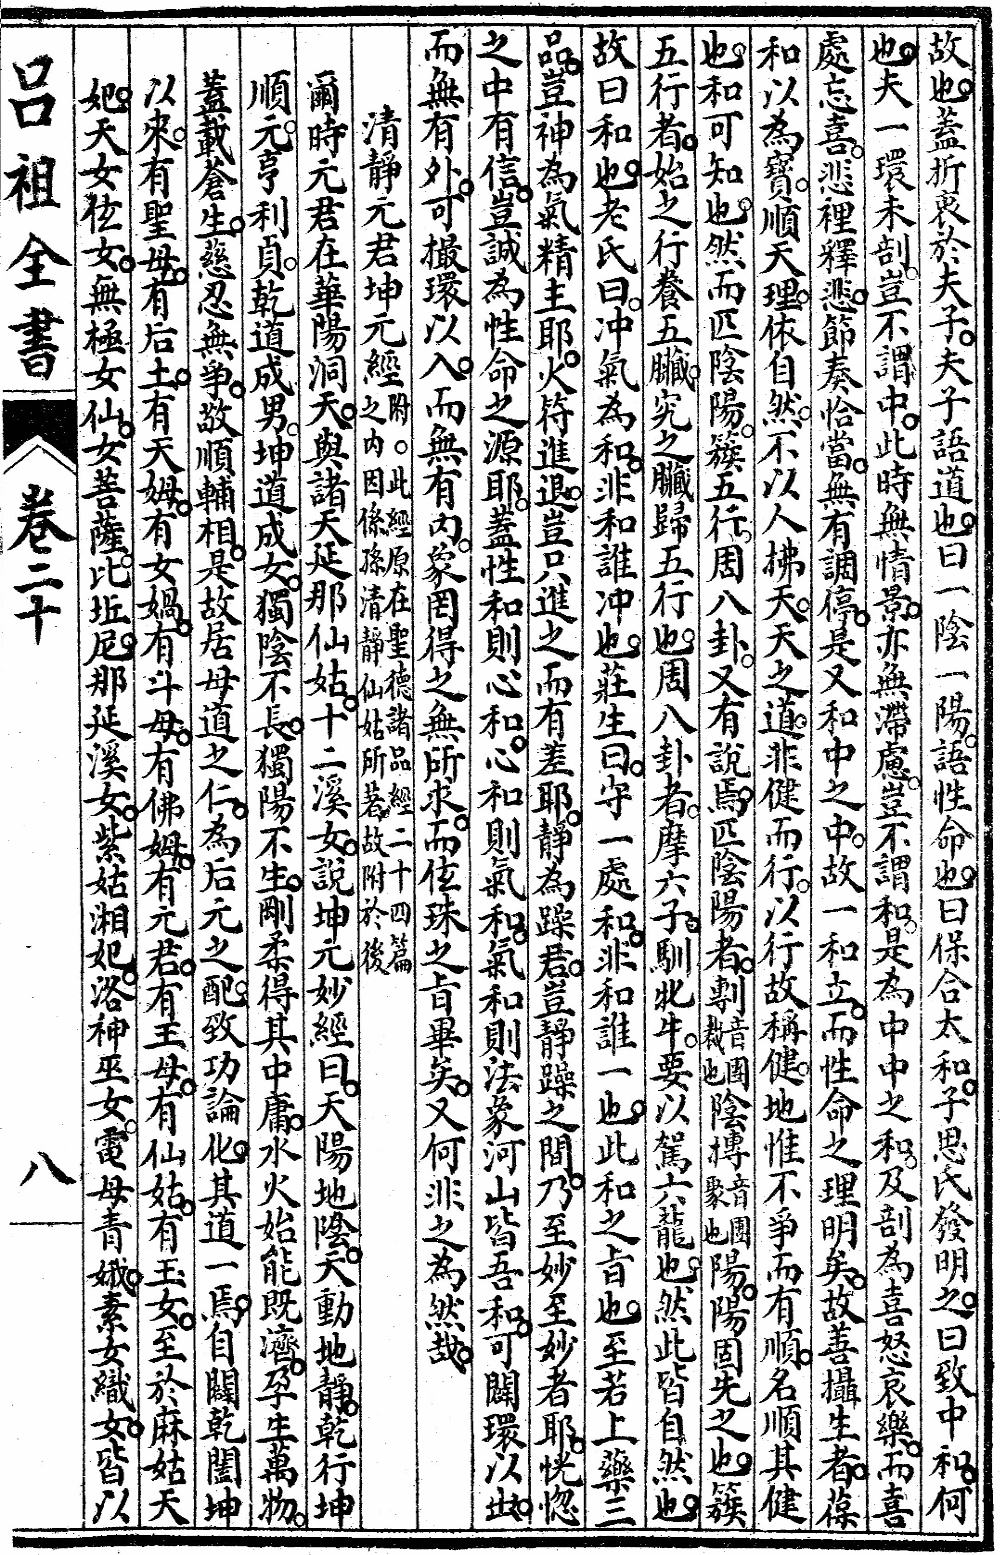 故也蓋折衷於夫子夫子語道也曰一陰一陽語性命也曰保合太和子思氏發明之曰致中和何
也夫一環未剖豈不謂中此時無情景亦無滯慮豈不謂和是為中中之和及剖為喜怒哀樂而喜
處忘喜悲裡釋悲節奏恰當無有調停是又和中之中故一和立而性命之理明矣故善攝生者葆
和以為寶順天理依自然不以人拂天天之道非健而行以行故稱健地惟不爭而有順名順其健
也和可知也然而匹陰陽簇五行周八卦又有說焉匹陰陽者剸音團裁也陰摶音團聚也陽陽固先之也簇
五行者始之行養五臟究之臟歸五行也周八卦者摩六子馴牝牛要以駕六龍也然此皆自然也
故曰和也老氏曰冲氣為和非和誰冲也莊生曰守一處和非和誰一也此和之旨也至若上藥三
品豈神為氣精主耶火符進退豈只進之而有差耶靜為躁君豈靜躁之間乃至妙至妙者耶恍惚
之中有信豈誠為性命之源耶蓋性和則心和心和則氣和氣和則法象河山皆吾和可闢環以出
而無有外可撮環以入而無有內象罔得之無所求而伭珠之旨畢矣又何非之為然哉
清靜元君坤元經附。此經原在聖德諸品經二十四篇之內因係孫清靜仙姑所著故附於後
爾時元君在華陽洞天與諸天延那仙姑十二溪女說坤元妙經曰天陽地陰天動地靜乾行坤
順元亨利貞乾道成男坤道成女獨陰不長獨陽不生剛柔得其中庸水火始能既濟孕生萬物
蓋載蒼生慈忍無爭敬順輔相是故居母道之仁為后元之配致功論化其道一焉自闢乾闔坤
以來有聖母有后土有天姆有女媧有斗母有佛姆有元君有王母有仙姑有玉女至於麻姑天
妃天女伭女無極女仙女菩薩比坵尼那延溪女紫姑湘妃洛神巫女電母青娥素女織女皆以
呂祖全書
卷二十
八